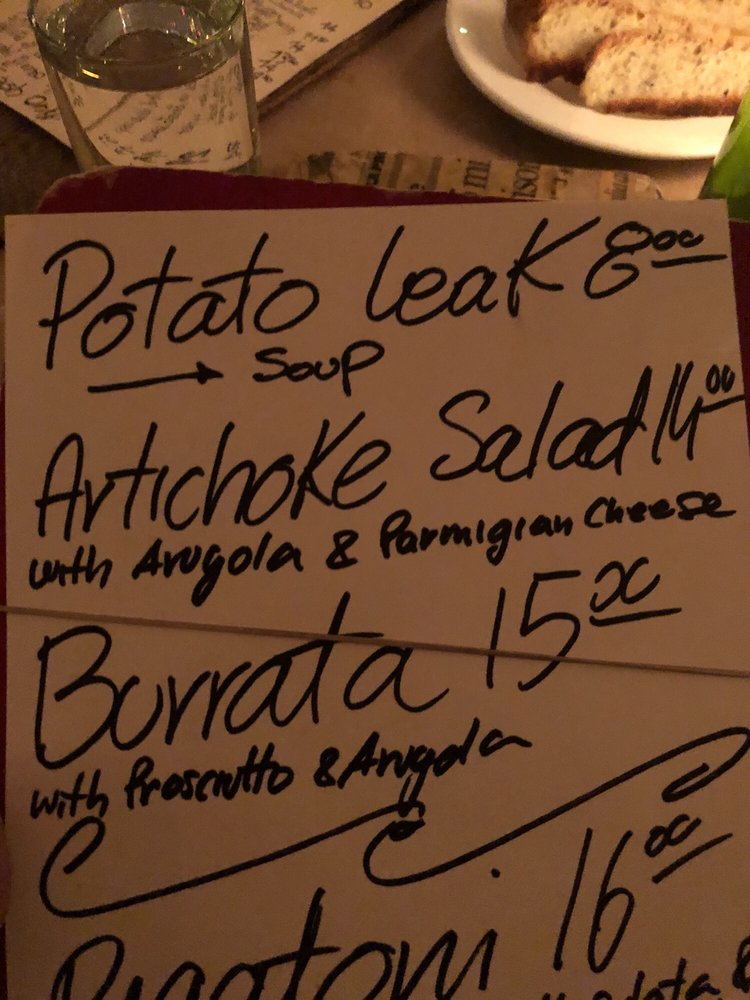 Potato Leak 8.00
Soup
Artichoke Salad 14.00
with Arugola & Parmigian Cheese
Burrata 15.00
with Prosciutto & Arugola
Rigatoni 16.00